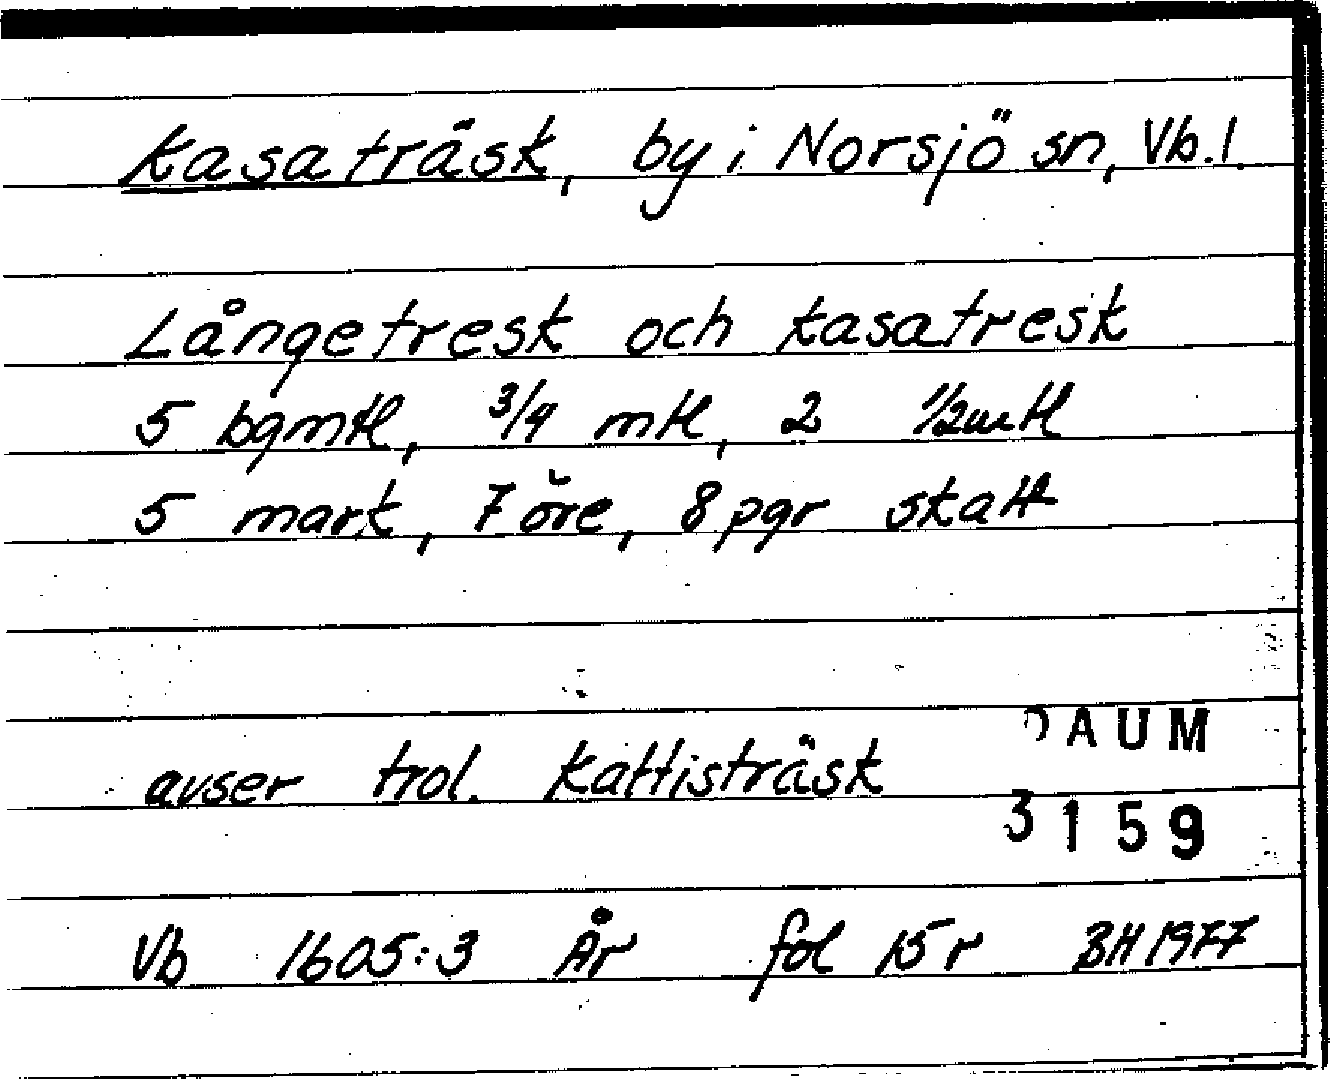 Kasaträsk, by i Norsjö sn, Vb.l.
Långetresk och Kasatresk
5 bgmtl, 3/4 mtl, 2 1/2mtl
5 mark, 7 öre, 8 pgr skatt
avser trol. Kattisträsk
DAUM
3159
Vb 1605:3 År fol 15r BH 1977